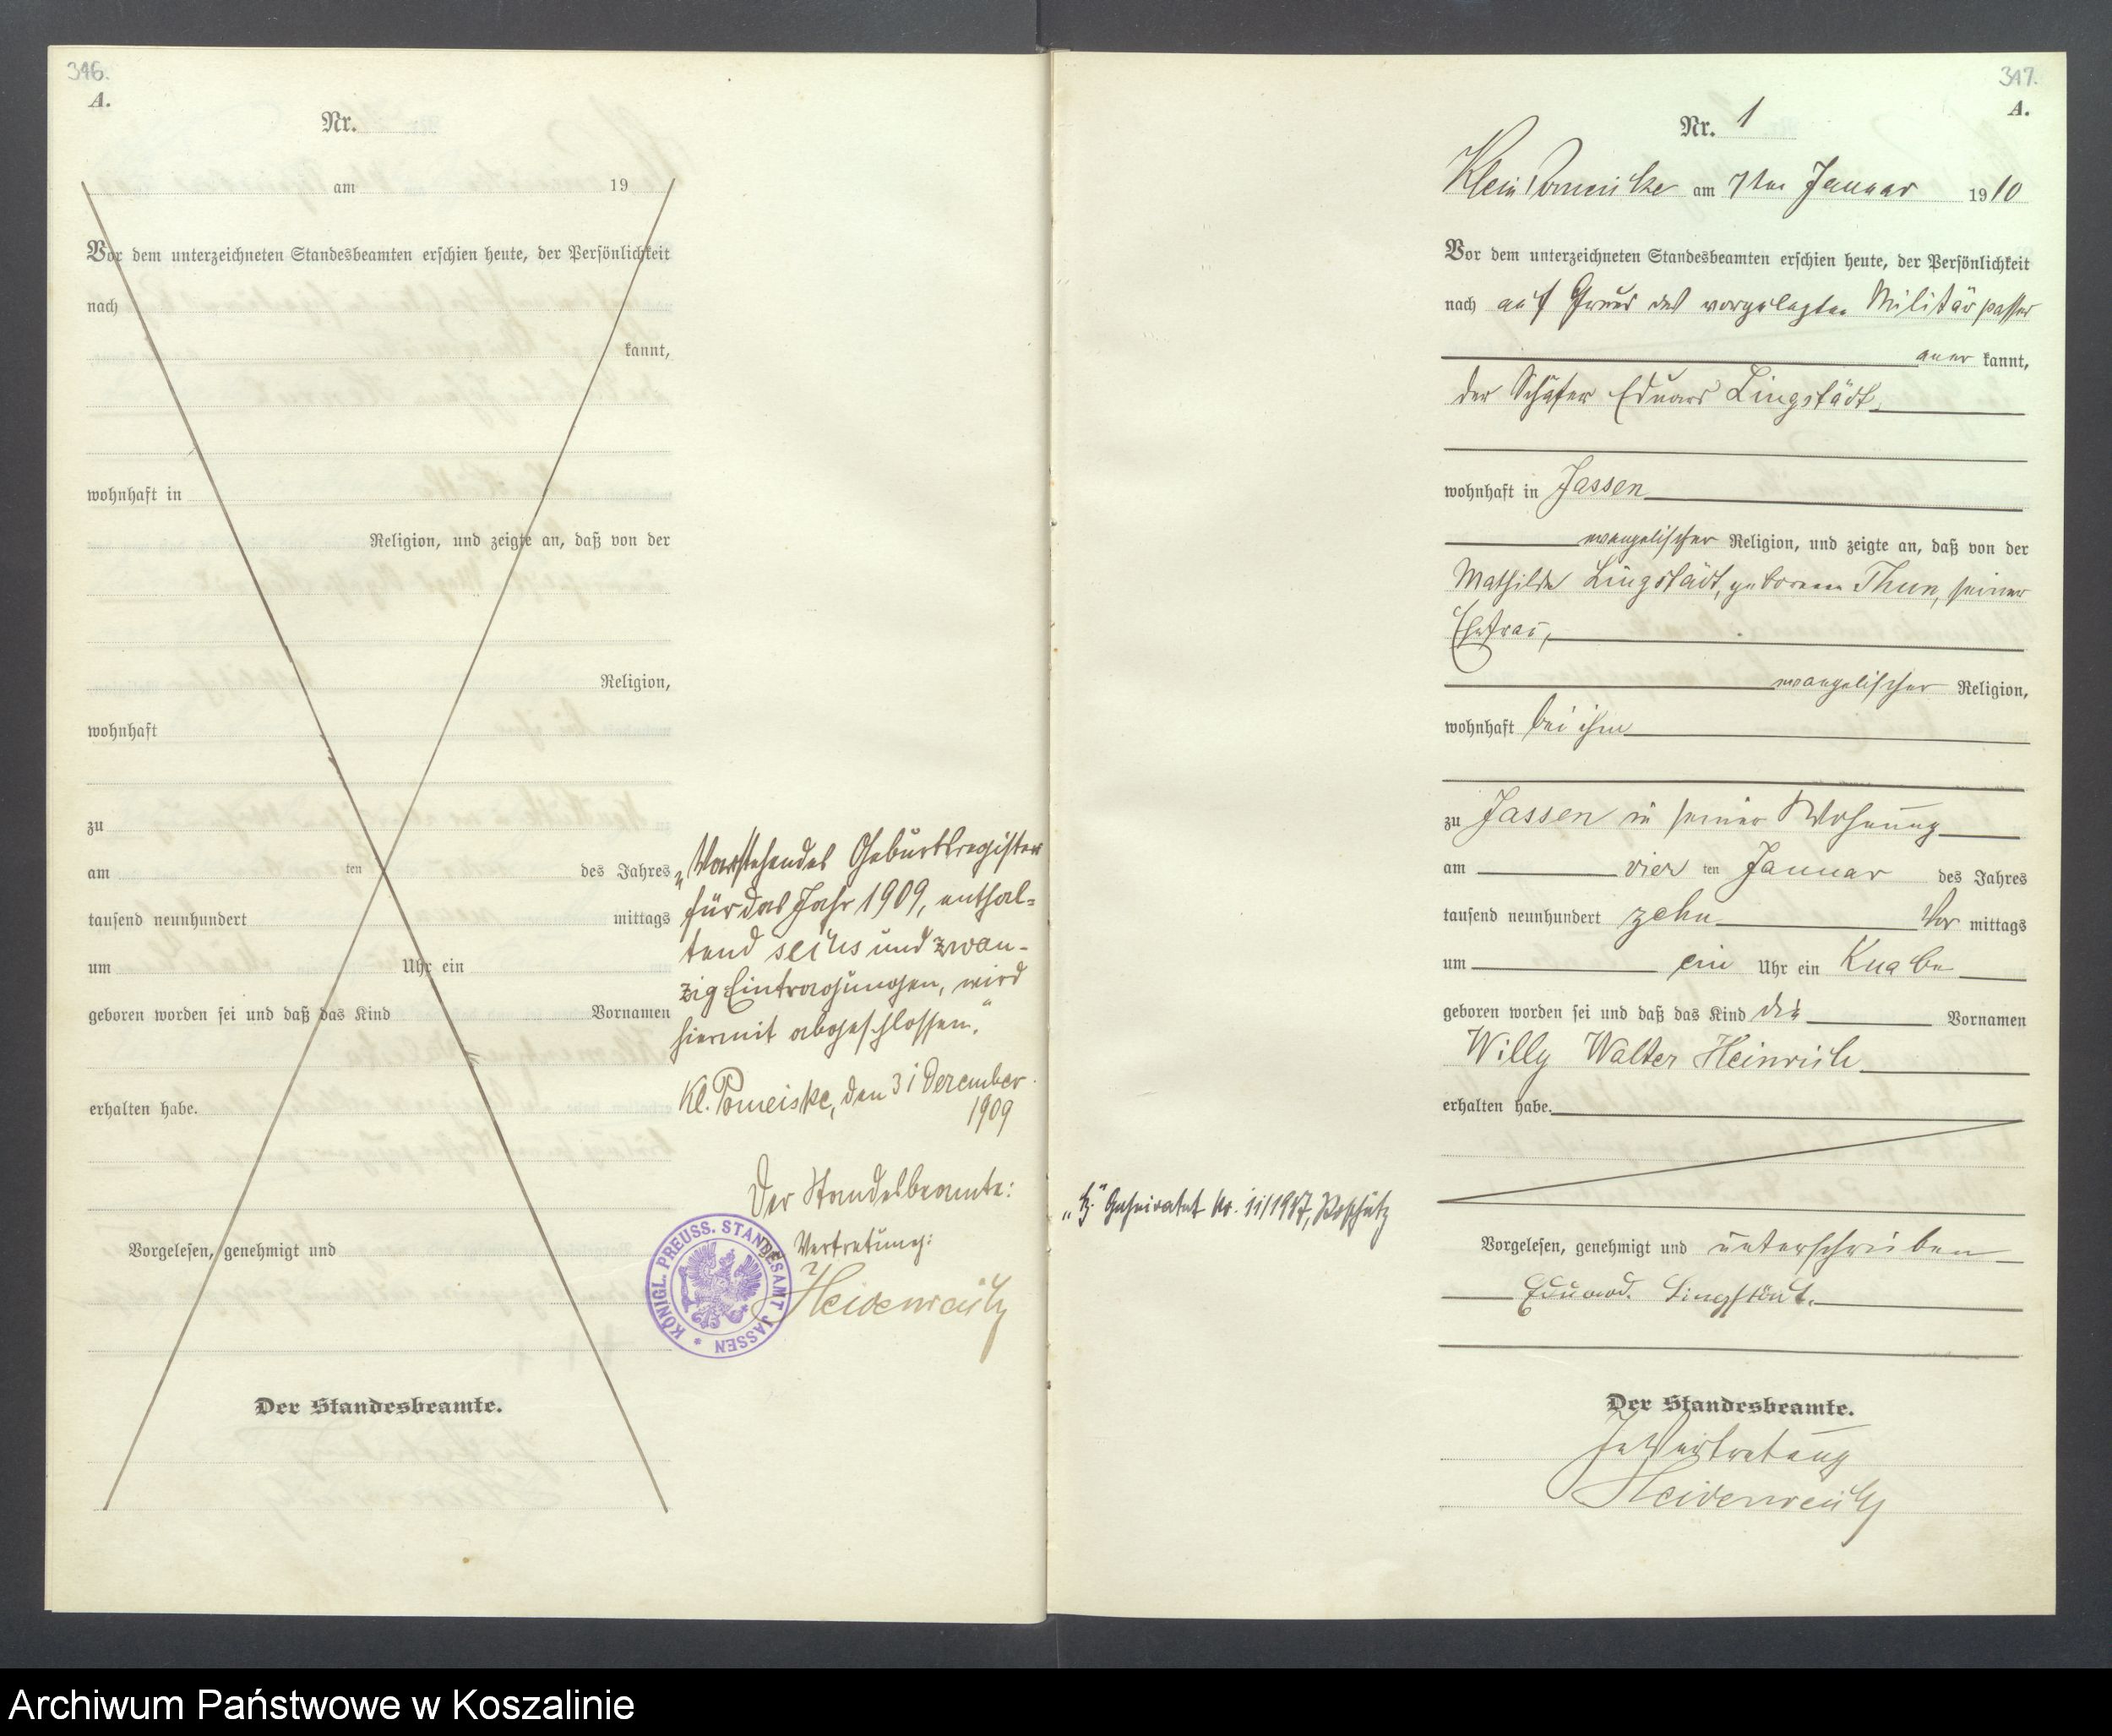 346.
A.
Nr.
am 19
Vor dem unterzeichneten Standesbeamten erschien heute, der Persönlichkeit
nach
kannt,
wohnhaft in
Religion, und zeigte an, daß von der
Religion,
wohnhaft
zu
am ten des Jahres
tausend neunhundert mittags
um Uhr ein
geboren worden sei und daß das Kind Vornamen
erhalten habe.
Vorgelesen, genehmigt und
Der Standesbeamte.
„Vorstehendes Geburtsregister
für das Jahr 1909, enthal-
tend sechs und zwan-
zig Eintragungen, wird
hiermit abgeschlossen."
Kl. Pomeiske, den 31 December
1909
Der Standesbeamte:
Vertretung:
Heidenreich
KÖNIGL. PREUSS. STANDESAMT JASSEN
347.
A.
Nr. 1
Klein Pomeiske am 7ten Januar 1910
Vor dem unterzeichneten Standesbeamten erschien heute, der Persönlichkeit
nach auf Grund des vorgelegten Militärpasses
aner kannt,
der Schäfer Eduard Lingstädt
wohnhaft in Jassen
evangelischer Religion, und zeigte an, daß von der
Mathilde Lingstädt, geborenen Thun, seiner
Ehefrau,
evangelischer Religion,
wohnhaft bei ihm
zu Jassen in seiner Wohnung
am vier ten Januar des Jahres
tausend neunhundert zehn Vor mittags
um ein Uhr ein Knabe
geboren worden sei und daß das Kind die Vornamen
Willy Walter Heinrich
erhalten habe.
Geheiratet Nr. 11/1937,
Vorgelesen, genehmigt und unterschrieben
Eduard. Lingstädt.
Der Standesbeamte.
In Vertretung
Heidenreich
Archiwum Państwowe w Koszalinie